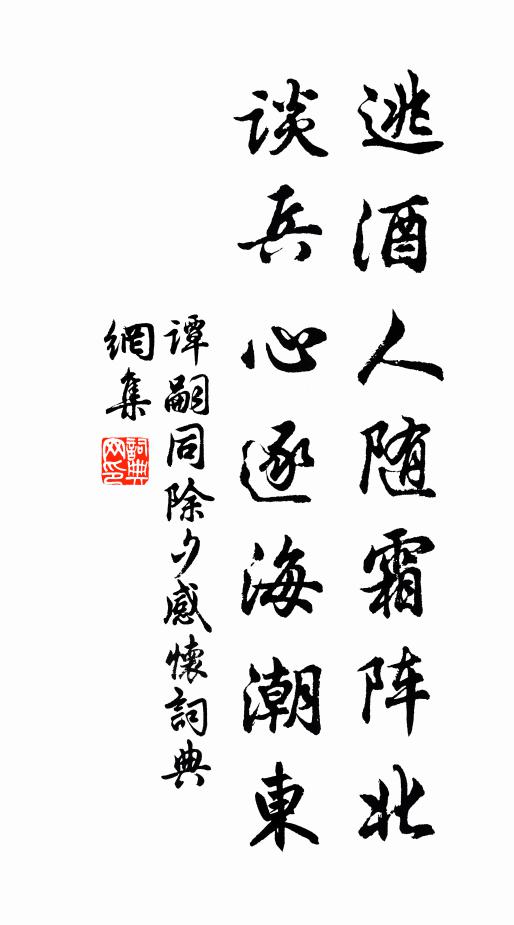 逃酒人随霜阵北
谈兵心逐海潮東
谭嗣同除夕感懷詞典
網集
詞典
网印